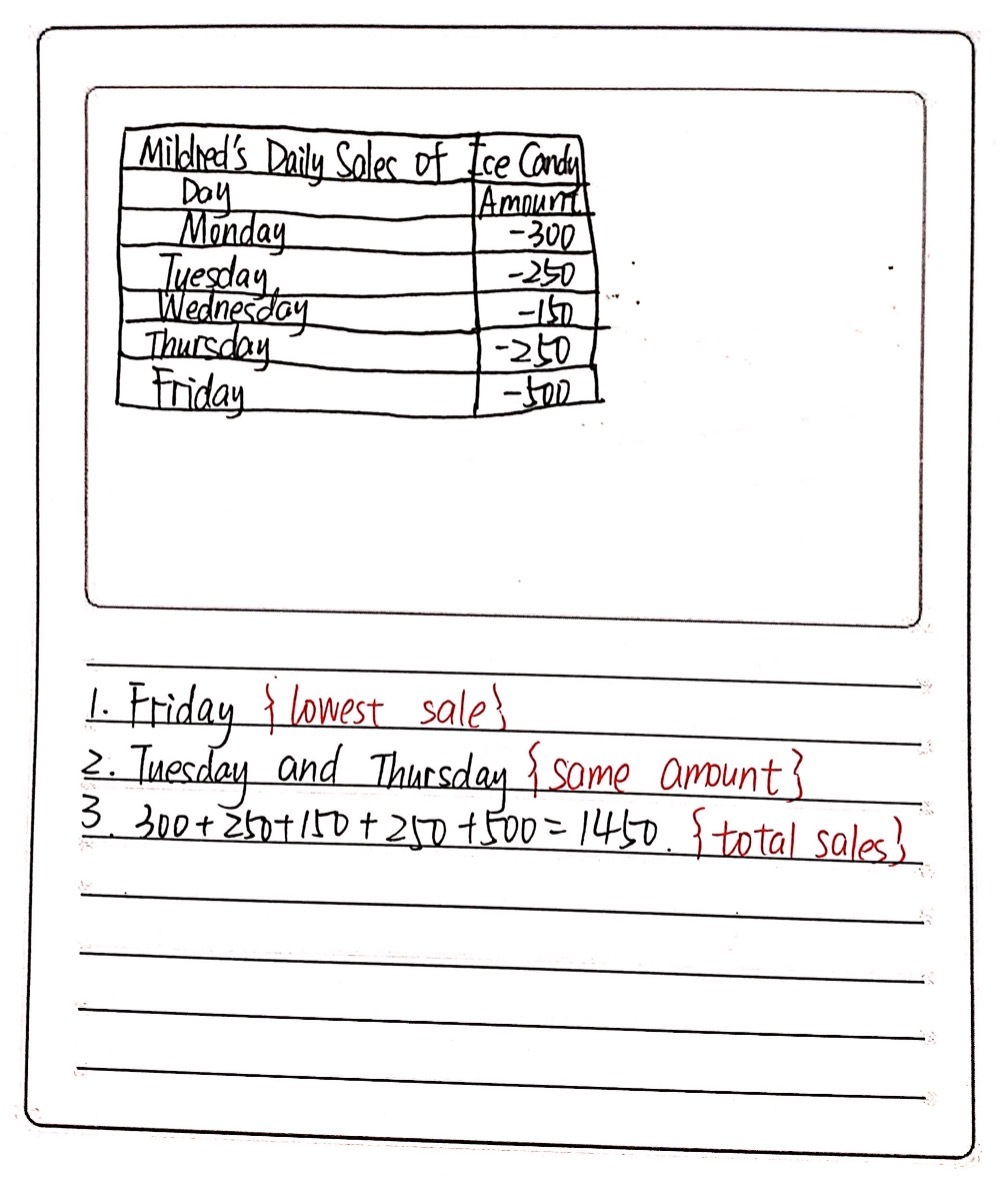 Mildred's Daily Sales of Ice Candy
Day Amount
Monday -300
Tuesday -250
Wednesday -150
Thursday -250
Friday -500
1. Friday {lowest sale}
2. Tuesday and Thursday {same amount}
3. 300+250+150+250+500=1450. {total sales}